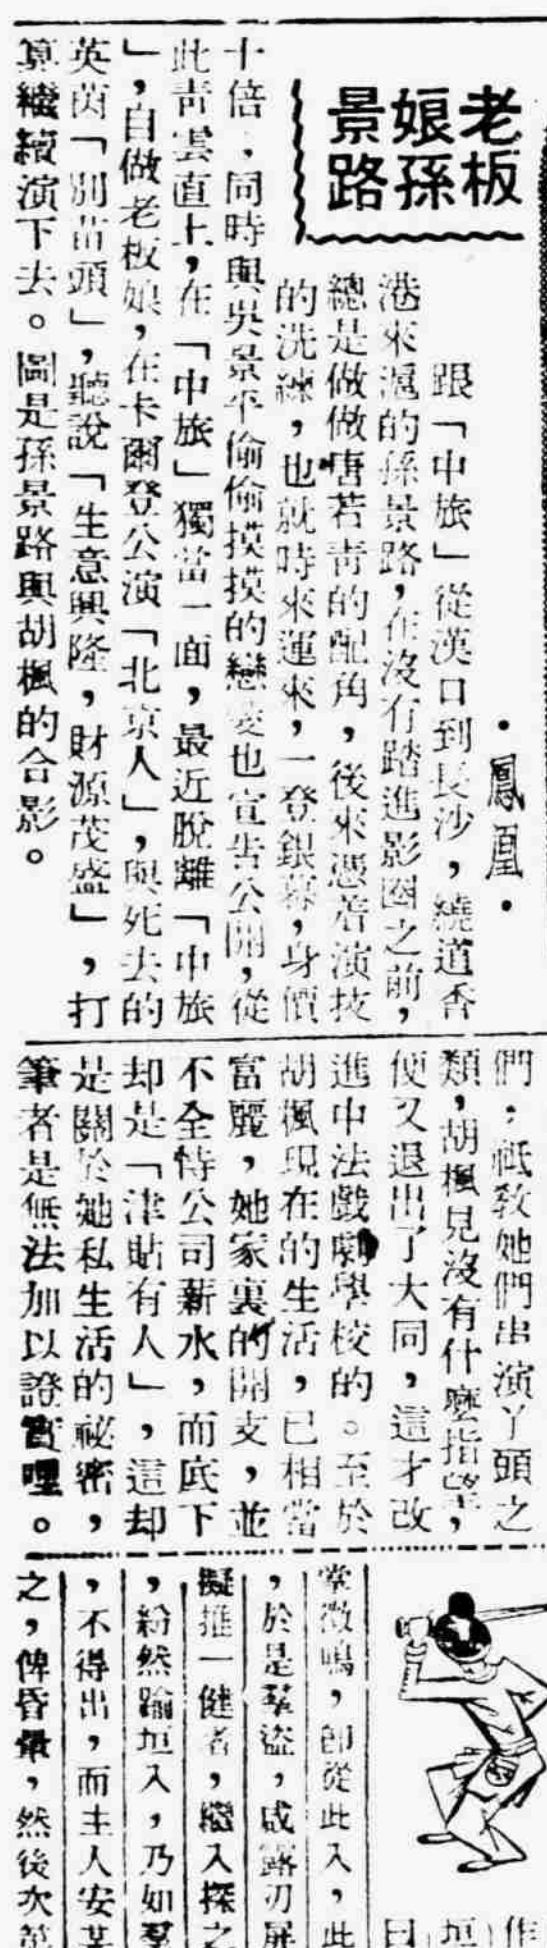 老板
娘孫
景路
·鳳凰·
跟「中旅」從漢口到長沙，繞道香
港來滬的孫景路，在沒有踏進影圈之前，
總是做做唐若青的配角，後來憑着演技
的洗練，也就時來運來，一登銀幕，身價
十倍，同時與吳景平偷偷摸摸的戀愛也宣告公開，從
此青雲直上，在「中旅」獨當一面，最近脫離「中旅
」，自做老板娘，在卡爾登公演「北京人」，與死去的
英茵「別苗頭」，聽說「生意興隆，財源茂盛」，打
算繼續演下去。圖是孫景路與胡楓的合影。
們，祇教她們串演丫頭之
類，胡楓見沒有什麼指望，
便又退出了大同，這才改
進中法戲劇學校的。至於
胡楓現在的生活，已相當
富麗，她家裏的開支，並
不全恃公司薪水，而底下
却是「津貼有人」，這却
是關於她私生活的祕密，
筆者是無法加以證實哩。
作
垣
日
堂徵鳴，卽從此入，此
，於是羣盜，咸露刃屏
擬推一健者，繼入探之
，紛然踰垣入，乃如羣
，不得出，而主人安某
之，俾昏暈，然後次第